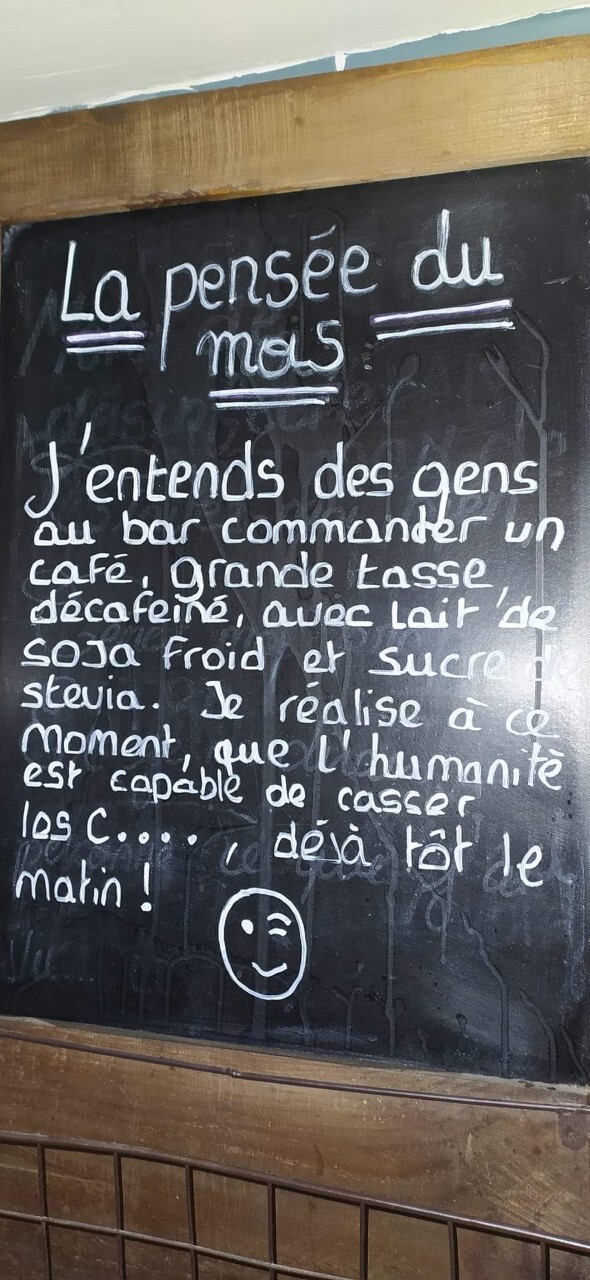 La pensée du
mois
J'entends des gens
au bar commander un
café, grande tasse,
décafeiné, avec lait de
soja froid et sucre de
stevia. Je réalise à ce
moment, que l'humanité
est capable de casser
les c...., déjà tôt le
matin !